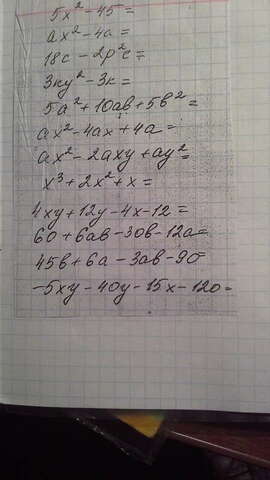 5x² - 45 =
ax² - 4a =
18c - 2p²c =
3ky² - 3k =
5a² + 10ab + 5b² =
ax² - 4ax + 4a =
ax² - 2axy + ay² =
x³ + 2x² + x =
4xy + 12y - 4x - 12 =
60 + 6ab - 30b - 12a =
45b + 6a - 3ab - 90
-5xy - 40y - 15x - 120 =